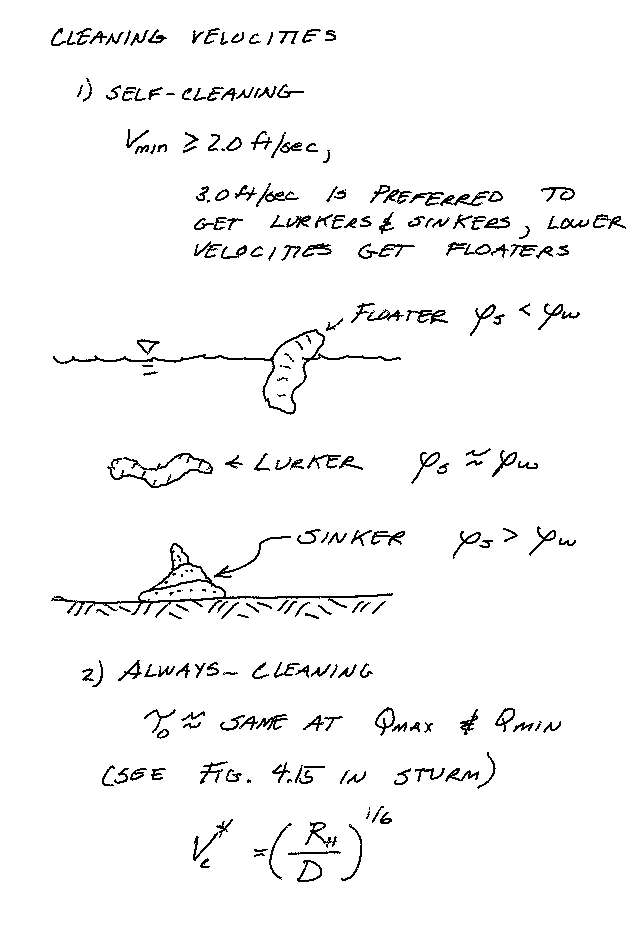 CLEANING VELOCITIES
1) SELF-CLEANING
Vmin ≥ 2.0 ft/sec,
3.0 ft/sec IS PREFERRED TO
GET LURKERS & SINKERS, LOWER
VELOCITIES GET FLOATERS
FLOATER φs < φw
LURKER φs ≈ φw
SINKER φs > φw
2) ALWAYS-CLEANING
τo ≈ SAME AT QMAX & QMIN
(SEE FIG. 4.15 IN STURM)
Vc* = (RH/D)^1/6